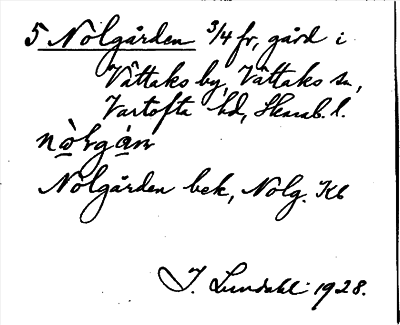 5 Nolgården 3/4 fr, gård i
Våttaks by, Våttaks sn,
Vartofta hd, Skarab. l.
Nolgården bek, Nolg. Kb
J. Lundahl 1928.